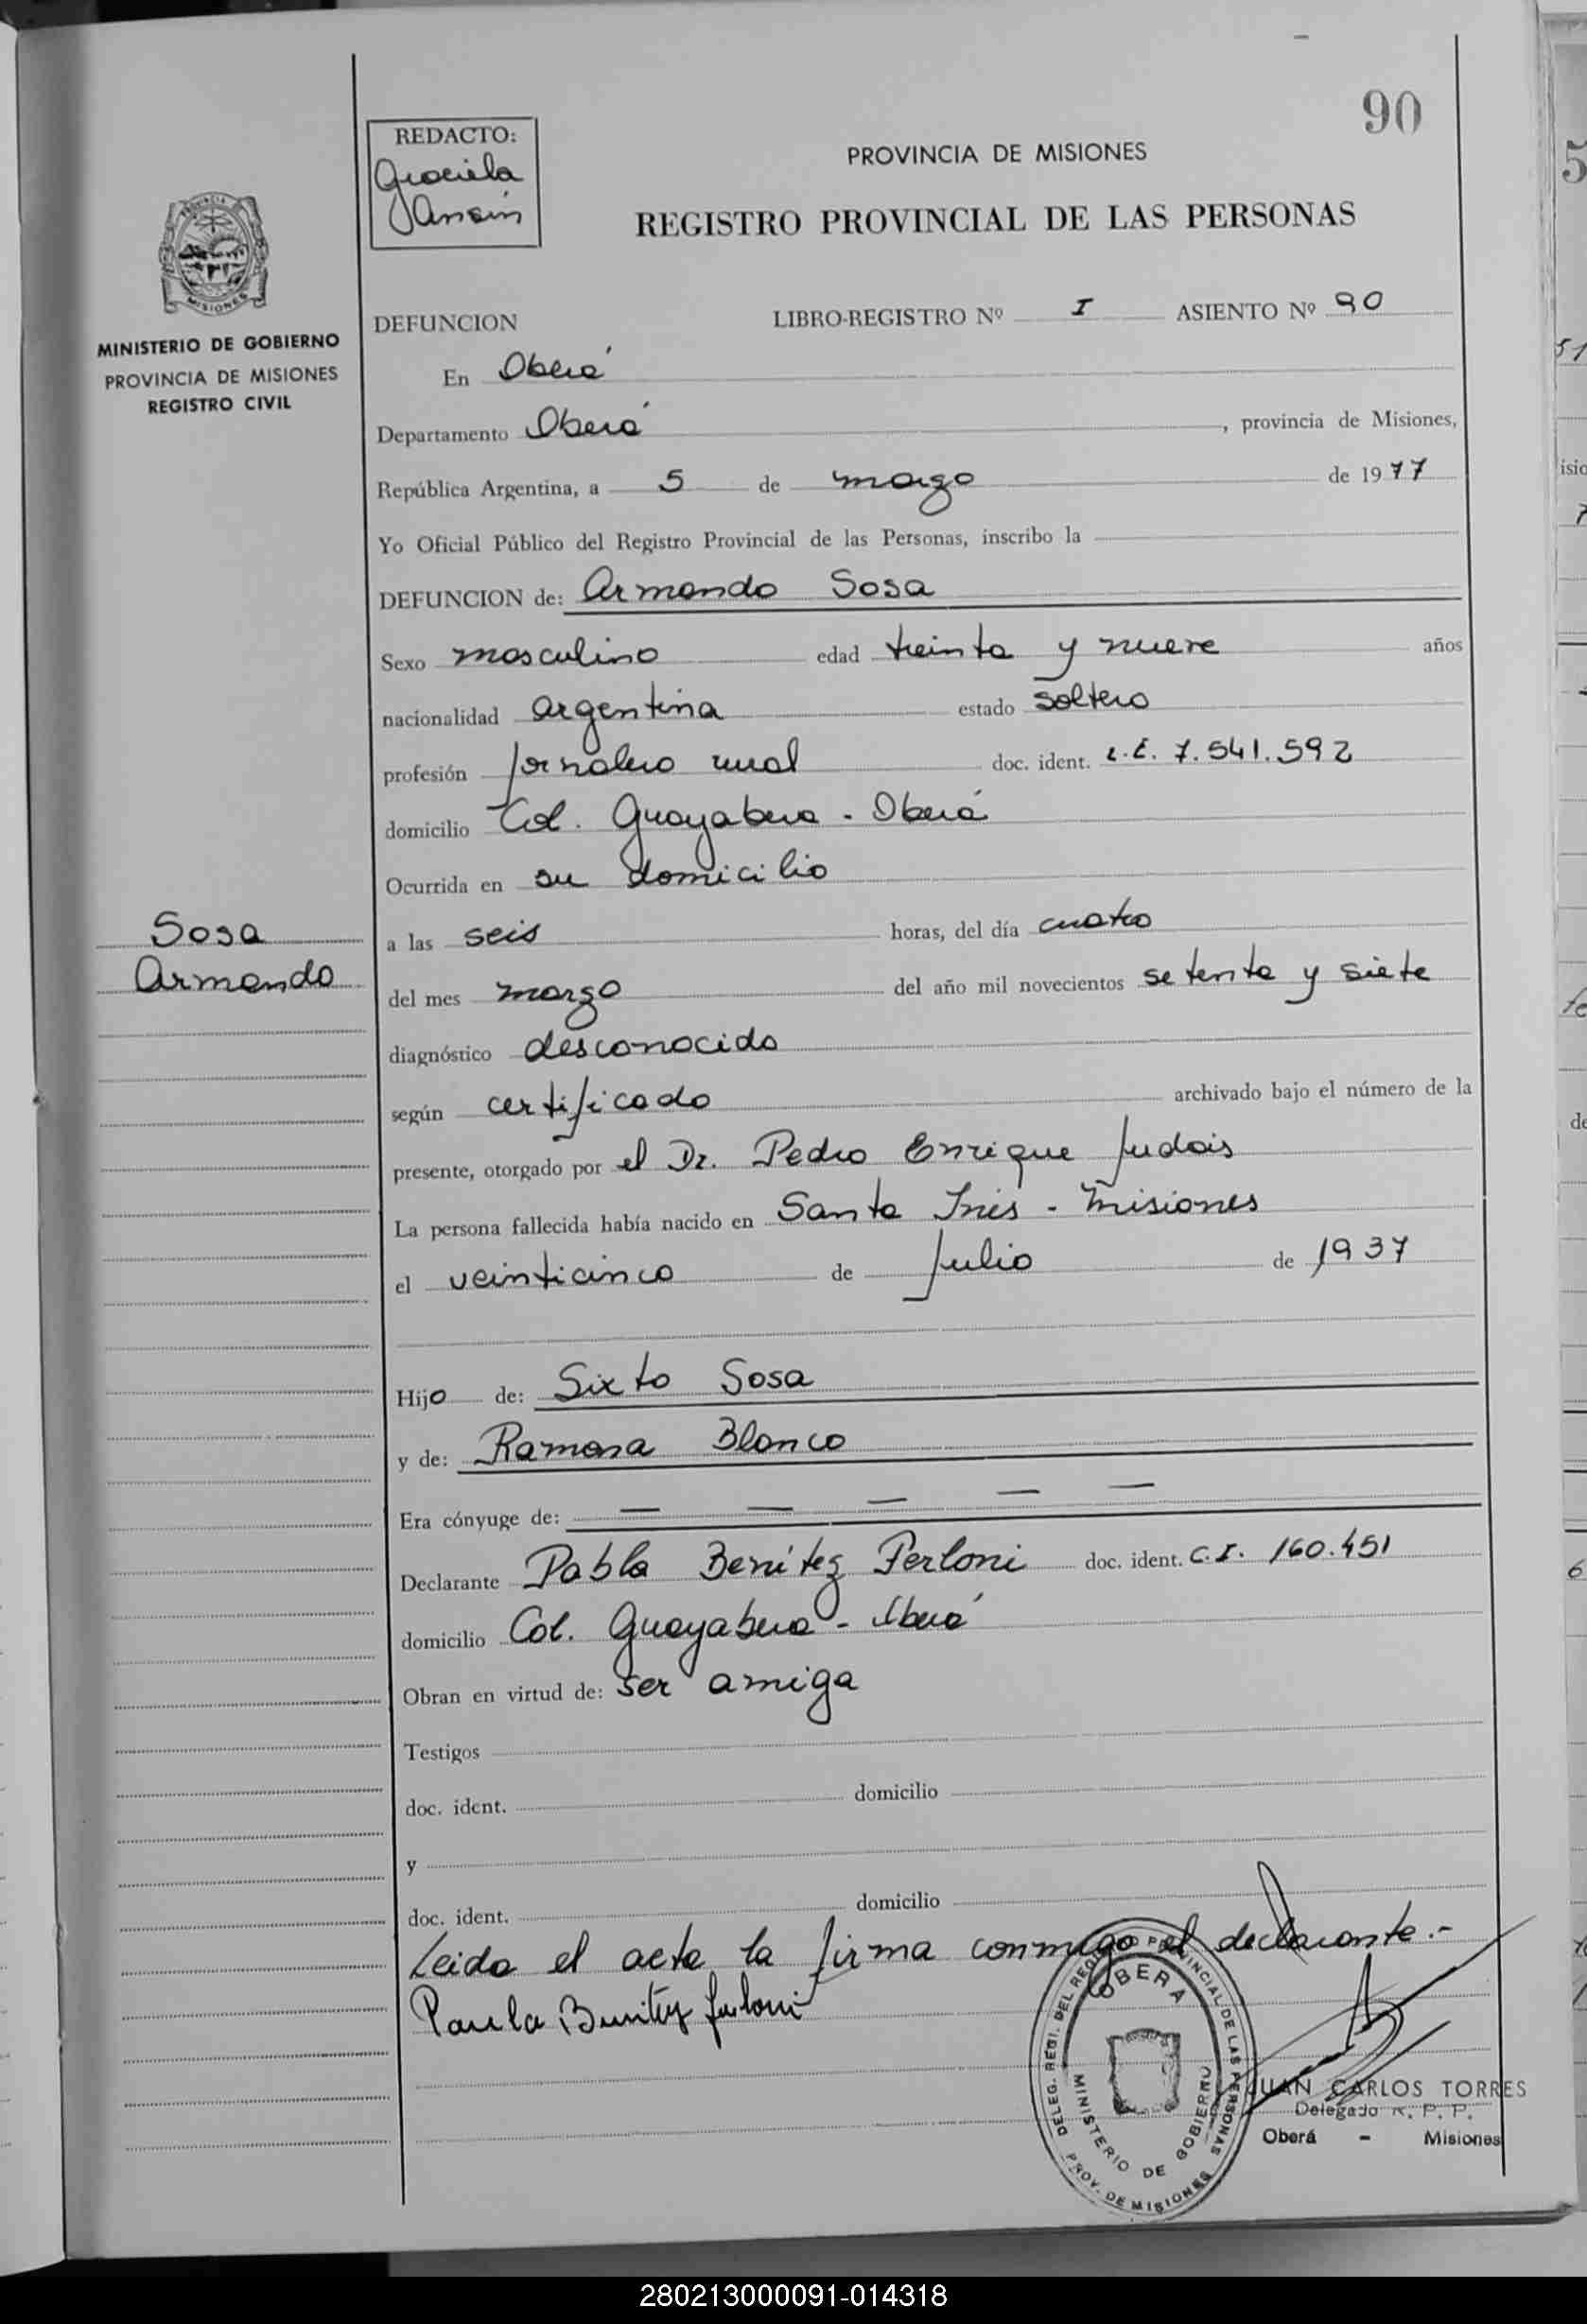 90
REDACTO:
Graciela
PROVINCIA DE MISIONES
REGISTRO PROVINCIAL DE LAS PERSONAS
MISIONES
MINISTERIO DE GOBIERNO
PROVINCIA DE MISIONES
REGISTRO CIVIL
DEFUNCION LIBRO-REGISTRO Nº I ASIENTO Nº 90
En Oberá
Departamento Oberá, provincia de Misiones,
República Argentina, a 5 de marzo de 1977
Yo Oficial Público del Registro Provincial de las Personas, inscribo la
DEFUNCION de: Armando Sosa
Sexo masculino edad treinta y nueve años
nacionalidad argentina estado soltero
profesión jornalero rural doc. ident. L.E. 7.541.592
domicilio Col. Guayabera - Oberá
Ocurrida en su domicilio
Sosa
Armando
a las seis horas, del día cuatro
del mes marzo del año mil novecientos setenta y siete
diagnóstico desconocido
según certificado archivado bajo el número de la
presente, otorgado por el Dr. Pedro Enrique Judais
La persona fallecida había nacido en Santa Inés - Misiones
el veinticinco de Julio de 1937
Hijo de: Sixto Sosa
y de: Ramona Blanco
Era cónyuge de: — — — — —
Declarante Pabla Benítez Ferloni doc. ident. C.I. 160.451
domicilio Col. Guayabera - Oberá
Obran en virtud de: ser amiga
Testigos
doc. ident. domicilio
y
doc. ident. domicilio
Leida el acta la firma conmigo el declarante.-
Paula Benitez Ferloni
DELEG. REGI. DEL REGISTRO PROVINCIAL DE LAS PERSONAS
OBERA
MINISTERIO DE GOBIERNO
PROV. DE MISIONES
JUAN CARLOS TORRES
Delegado R. P. P.
Oberá - Misiones
280213000091-014318